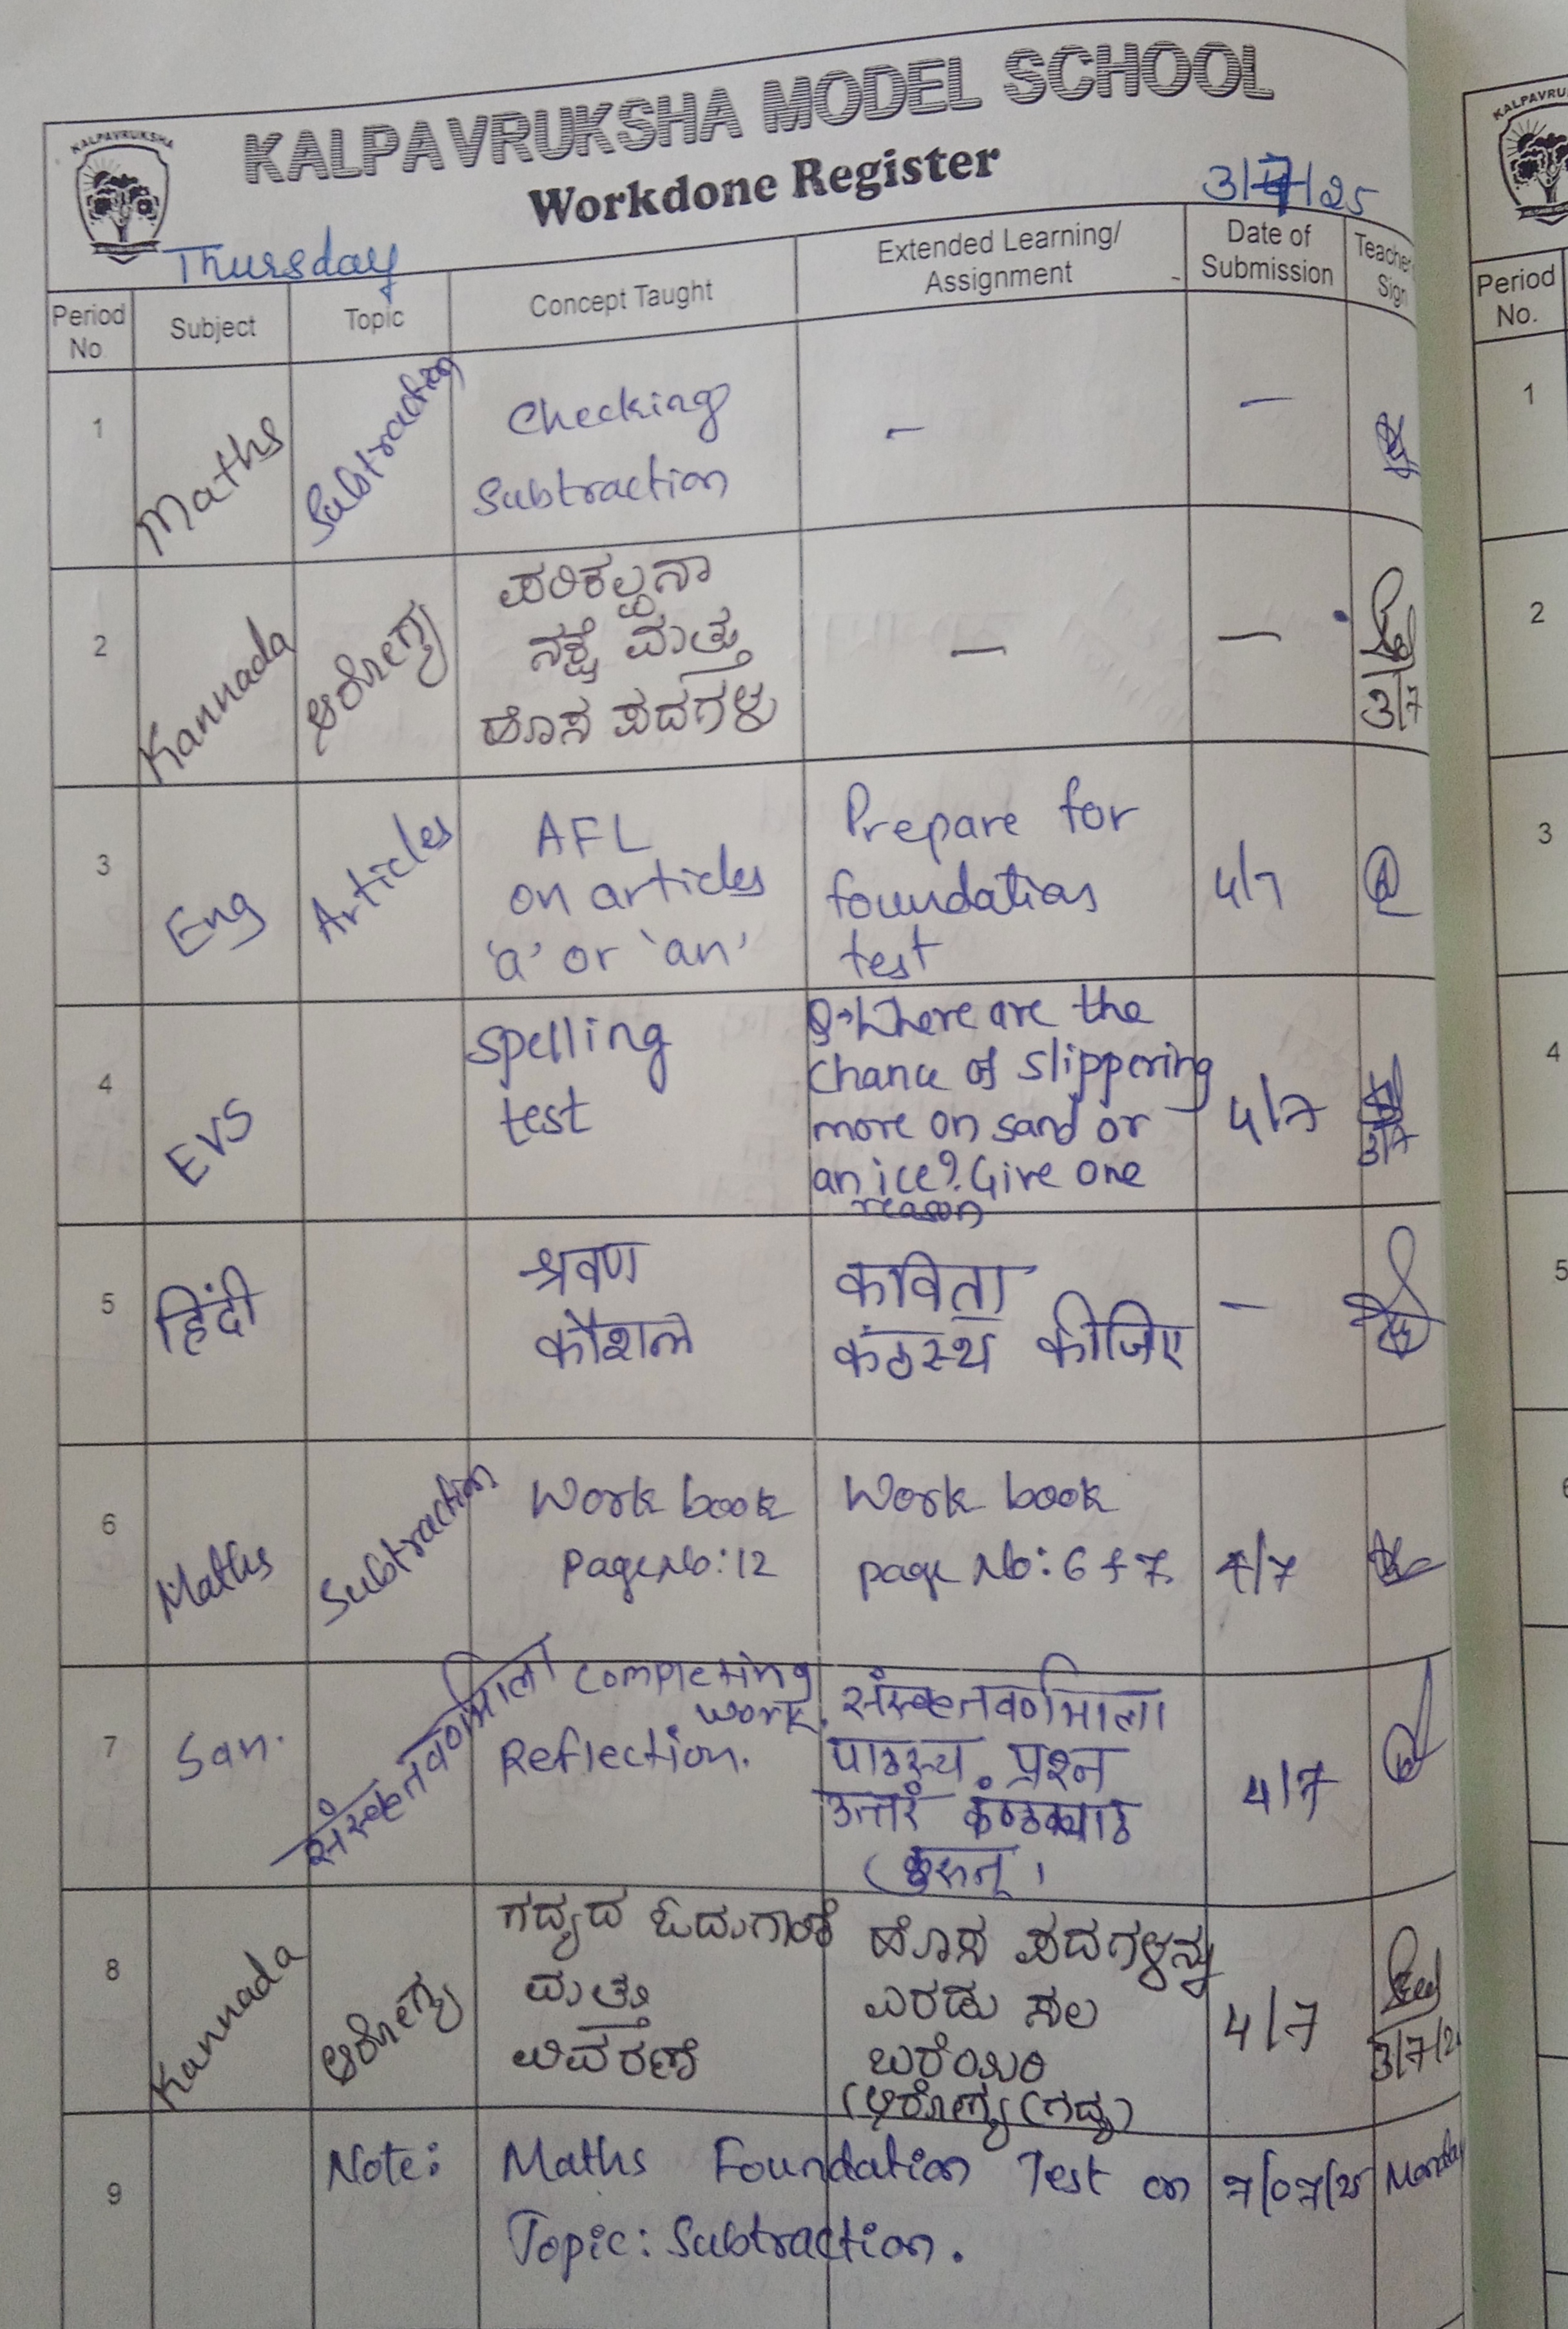 KALPAVRUKSHA
KALPAVRUKSHA MODEL SCHOOL
Workdone Register
3/7/25
Thursday
Period No Subject Topic Concept Taught Extended Learning/ Assignment Date of Submission Teacher Sign
1 Maths Subtraction Checking — —
Subtraction
2 Kannada ಆರೋಗ್ಯ ಪರಿಕಲ್ಪನಾ — —
ನಕ್ಷೆ ಮತ್ತು
ಹೊಸ ಪದಗಳು
3/7
3 Eng Articles AFL Prepare for 4/7
on articles foundation
'a' or 'an' test
4 EVS spelling Q→Where are the 4/7
test chance of slippering
more on sand or
an ice? Give one
reason
3/7
5 हिंदी श्रवण कविता —
कौशल कंठस्थ कीजिए
6 Maths Subtraction Work book Work book 4/7
Page No: 12 page No: 6 & 7
7 San. संस्कृतवर्णमाला completing work. संस्कृतवर्णमाला 4/7
Reflection. पाठस्य प्रश्न
उत्तरं
8 Kannada ಆರೋಗ್ಯ ಗದ್ಯದ ಓದುಗಾರಿಕೆ ಹೊಸ ಪದಗಳನ್ನು 4/7
ಮತ್ತು ಎರಡು ಸಲ
ವಿವರಣೆ ಬರೆಯಿರಿ
(ಆರೋಗ್ಯ (ಗದ್ಯ)
3/7/2
9 Note: Maths Foundation Test on 7/07/25 Monday
Topic: Subtraction.
KALPAVRU
Period
No.
1
2
3
4
5